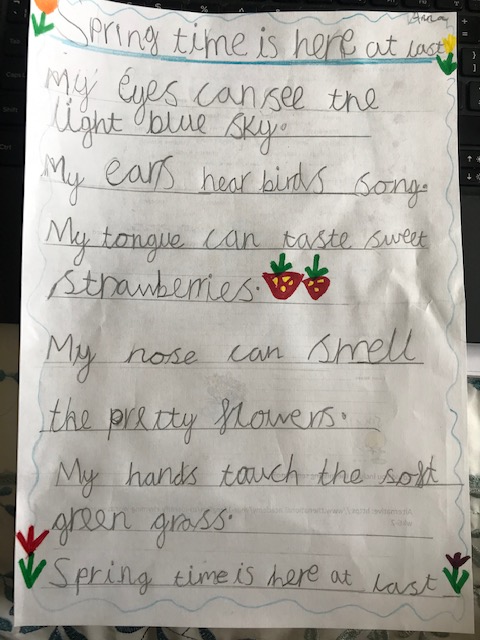 Anna
Spring time is here at last
My Eyes can see the
light blue sky.
My ears hear birds song.
My tongue can taste sweet
strawberries.
My nose can smell
the pretty flowers.
My hands touch the soft
green grass.
Spring time is here at last